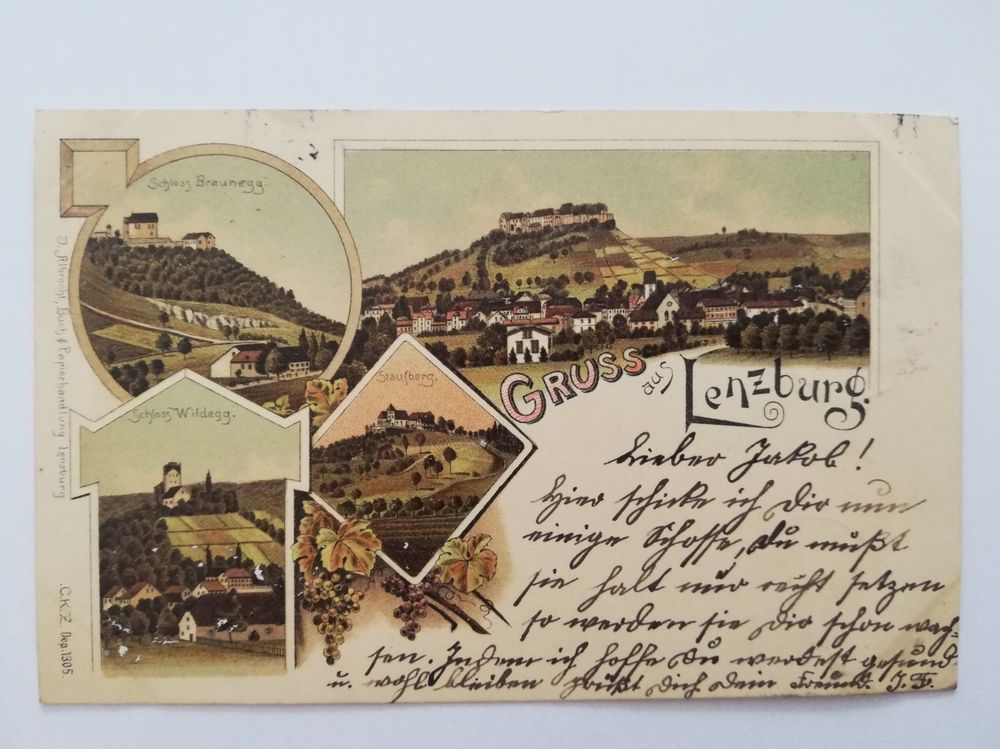 Schloss Braunegg.
Staufberg.
Schloss Wildegg.
D. Albrecht, Buch & Papierhandlung Lenzburg
C.K.Z. Dep. 1305
GRUSS aus Lenzburg.
Lieber Jakob!
Hier schicke ich Dir nun
einige Schosse, Du mußt
sie halt nur recht setzen
so werden sie Dir schon wach-
sen. Indem ich hoffe Du werdest gesund
u. wohl bleiben grüßt Dich Dein Freund. J. F.